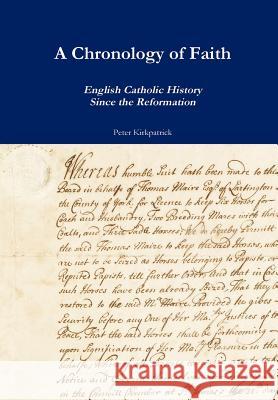 A Chronology of Faith
English Catholic History
Since the Reformation
Peter Kirkpatrick
Whereas humble Suit hath been made to the
Board in behalf of Thomas Maire Esqr of Lartington
the County of York, for Licence to keep Six Horses for
Coach and Husbandry, Two Breeding Mares with their
Colts, and Three Saddle Horses; We do hereby Permitt the
said Thomas Maire to keep the said Horses, wh
are not to be Seized as Horses belonging to Papists, or
Reputed Papists, till further Order, And in case any
such Horses have been already Seized, That they
restored to the said Mr Maire Provided he gives
Security before any One of Her Majtys Justices of the
Peace, That the said Horses shall be forthcoming
upon Signification of Her Majtys Pleasure in that